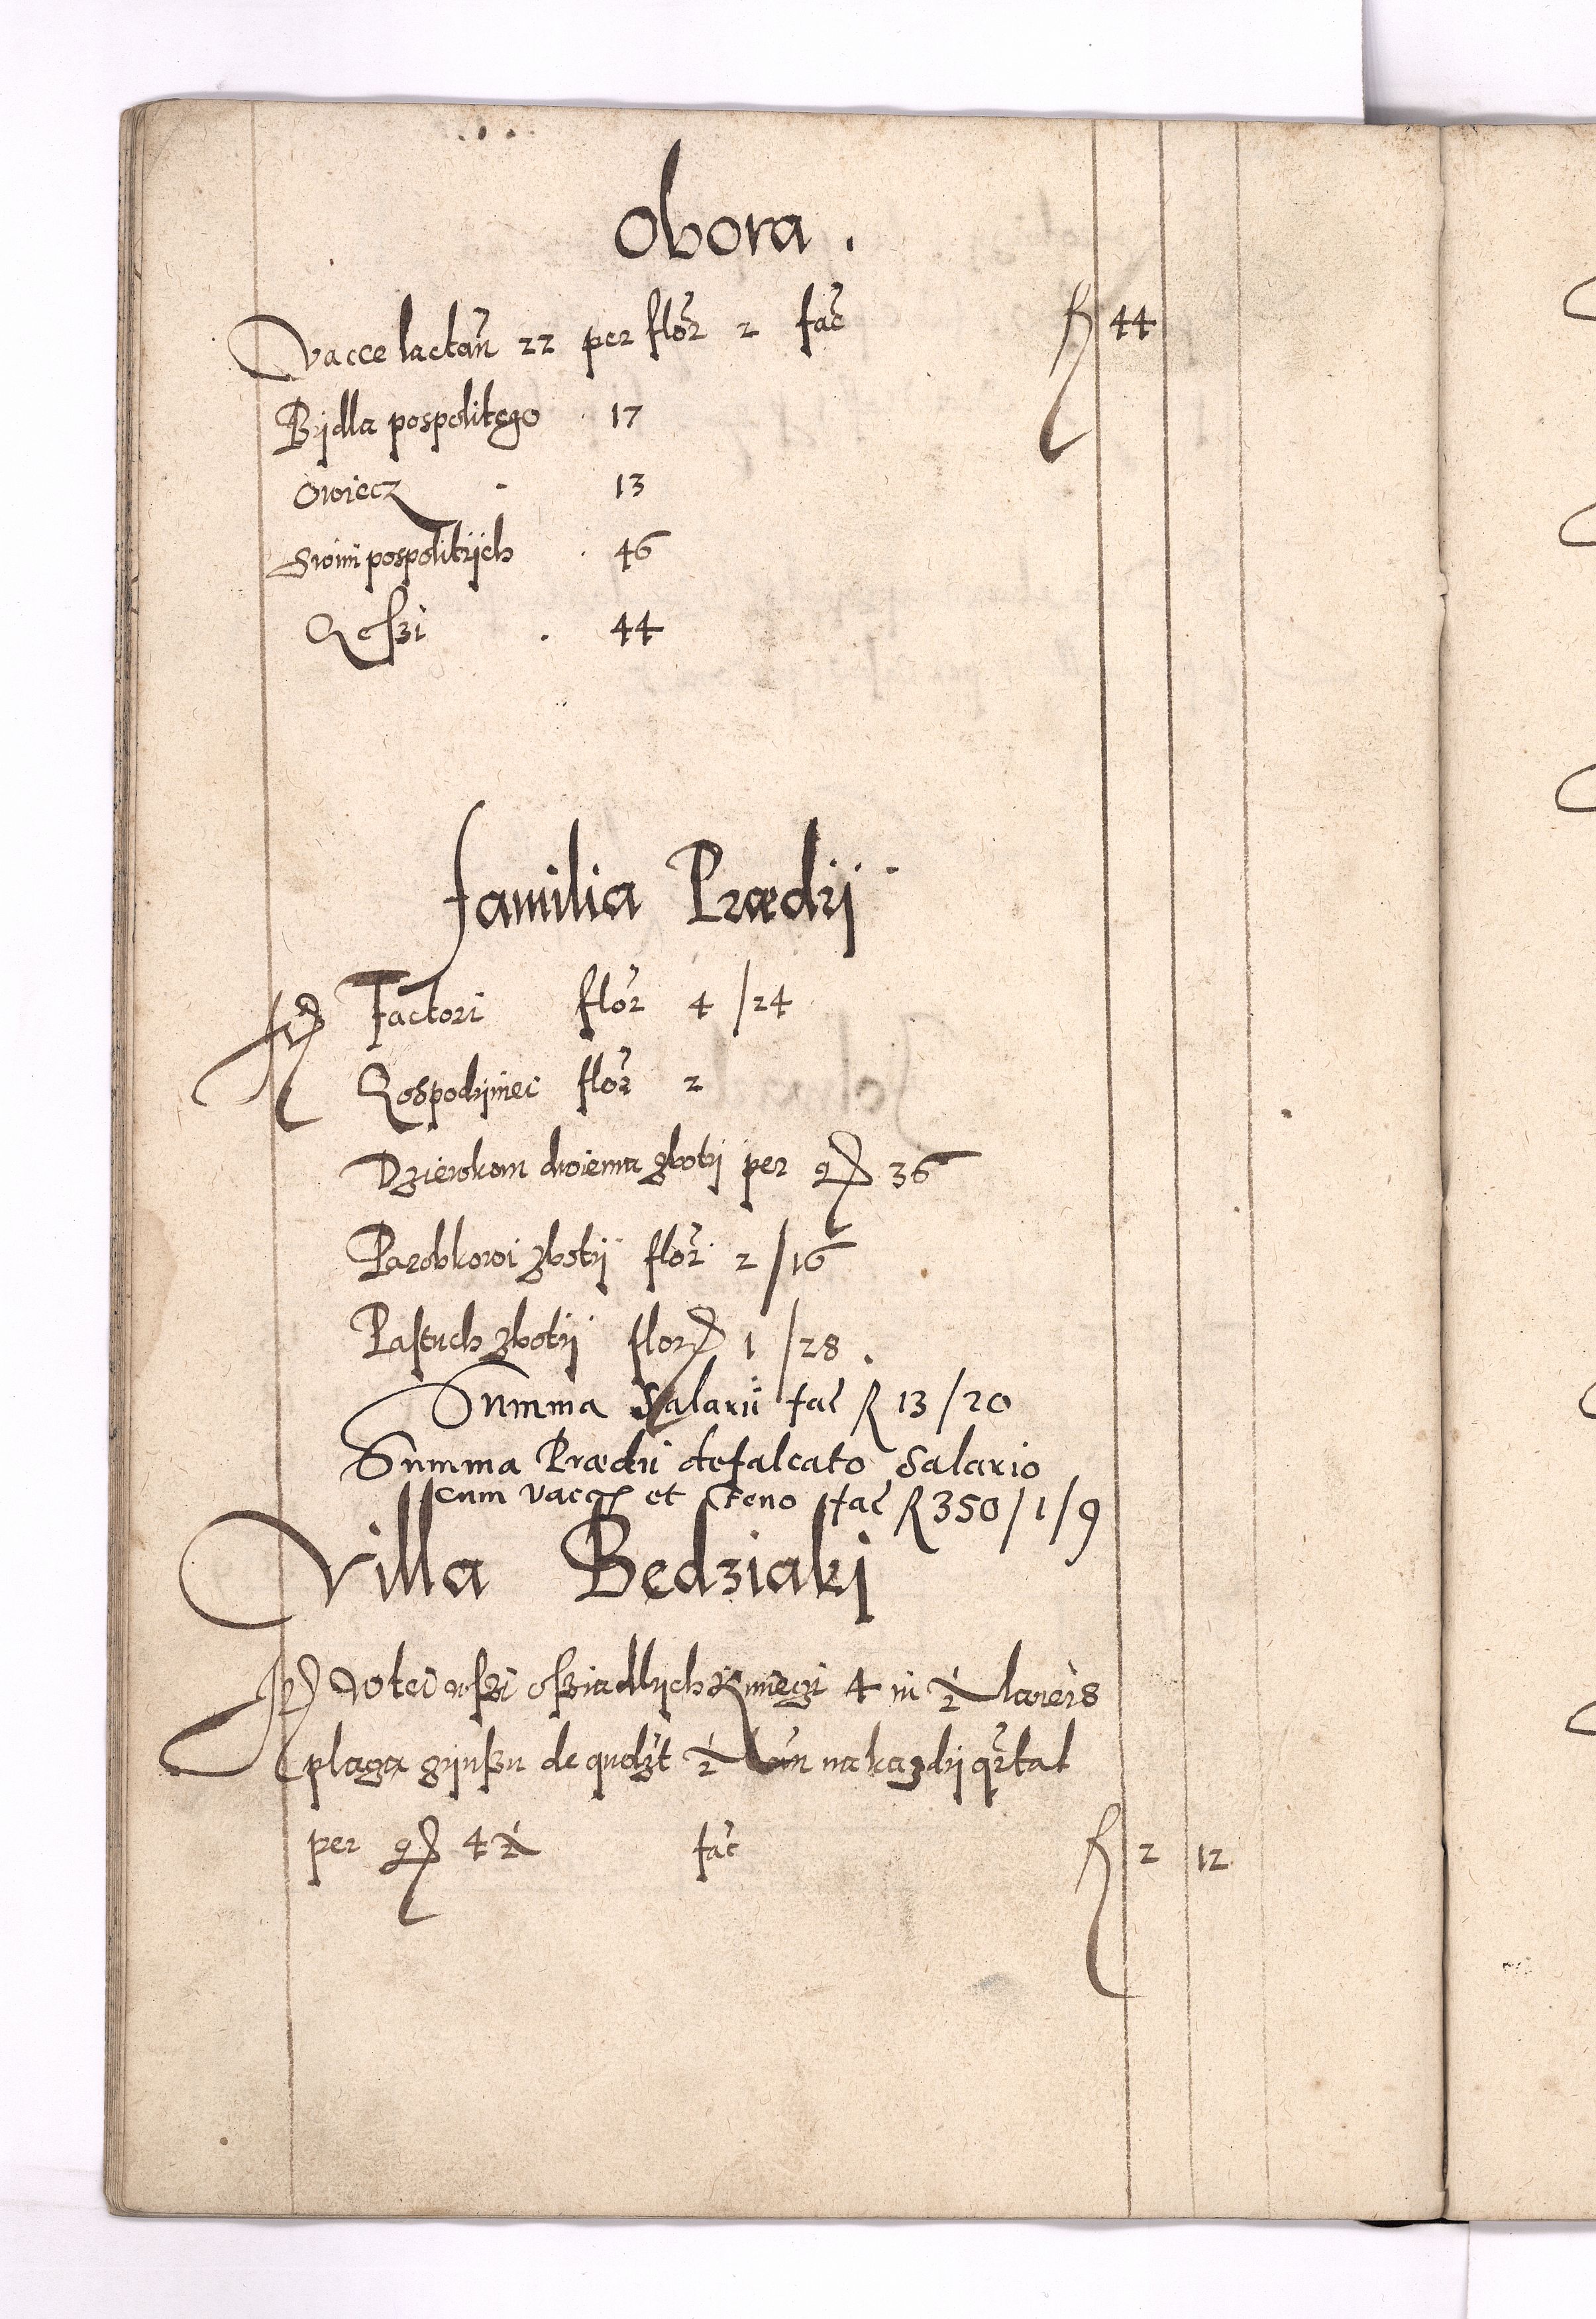 Obora.
Vacce lactan̄ 22 per flor 2 fac̄ fl 44
Bydla pospolitego 17
Owiecz 13
Swini pospolitÿch 46
Gęsszi 44
Familia Prædij
Factori flor 4 / 24
Gospodÿniei flor 2
Dziewkom dwiema zboty per g 36
Parobkowi zbotÿ flor 2 / 16
Pastuch zbotÿ flor 1 / 28.
Summa Salarii fac fl 13 / 20
Summa Prædii defalcato Salario
cum vacc et feno fac fl 350 / 1 / 9
Villa Bedziaki
W tei wszi osziadlÿch Kmiecÿ 4 in ½ laneis
placza czÿnszu de quolz̄t ½ lan na kazdÿ qrtal
per g 4 ½ fac̄ fl 2 12